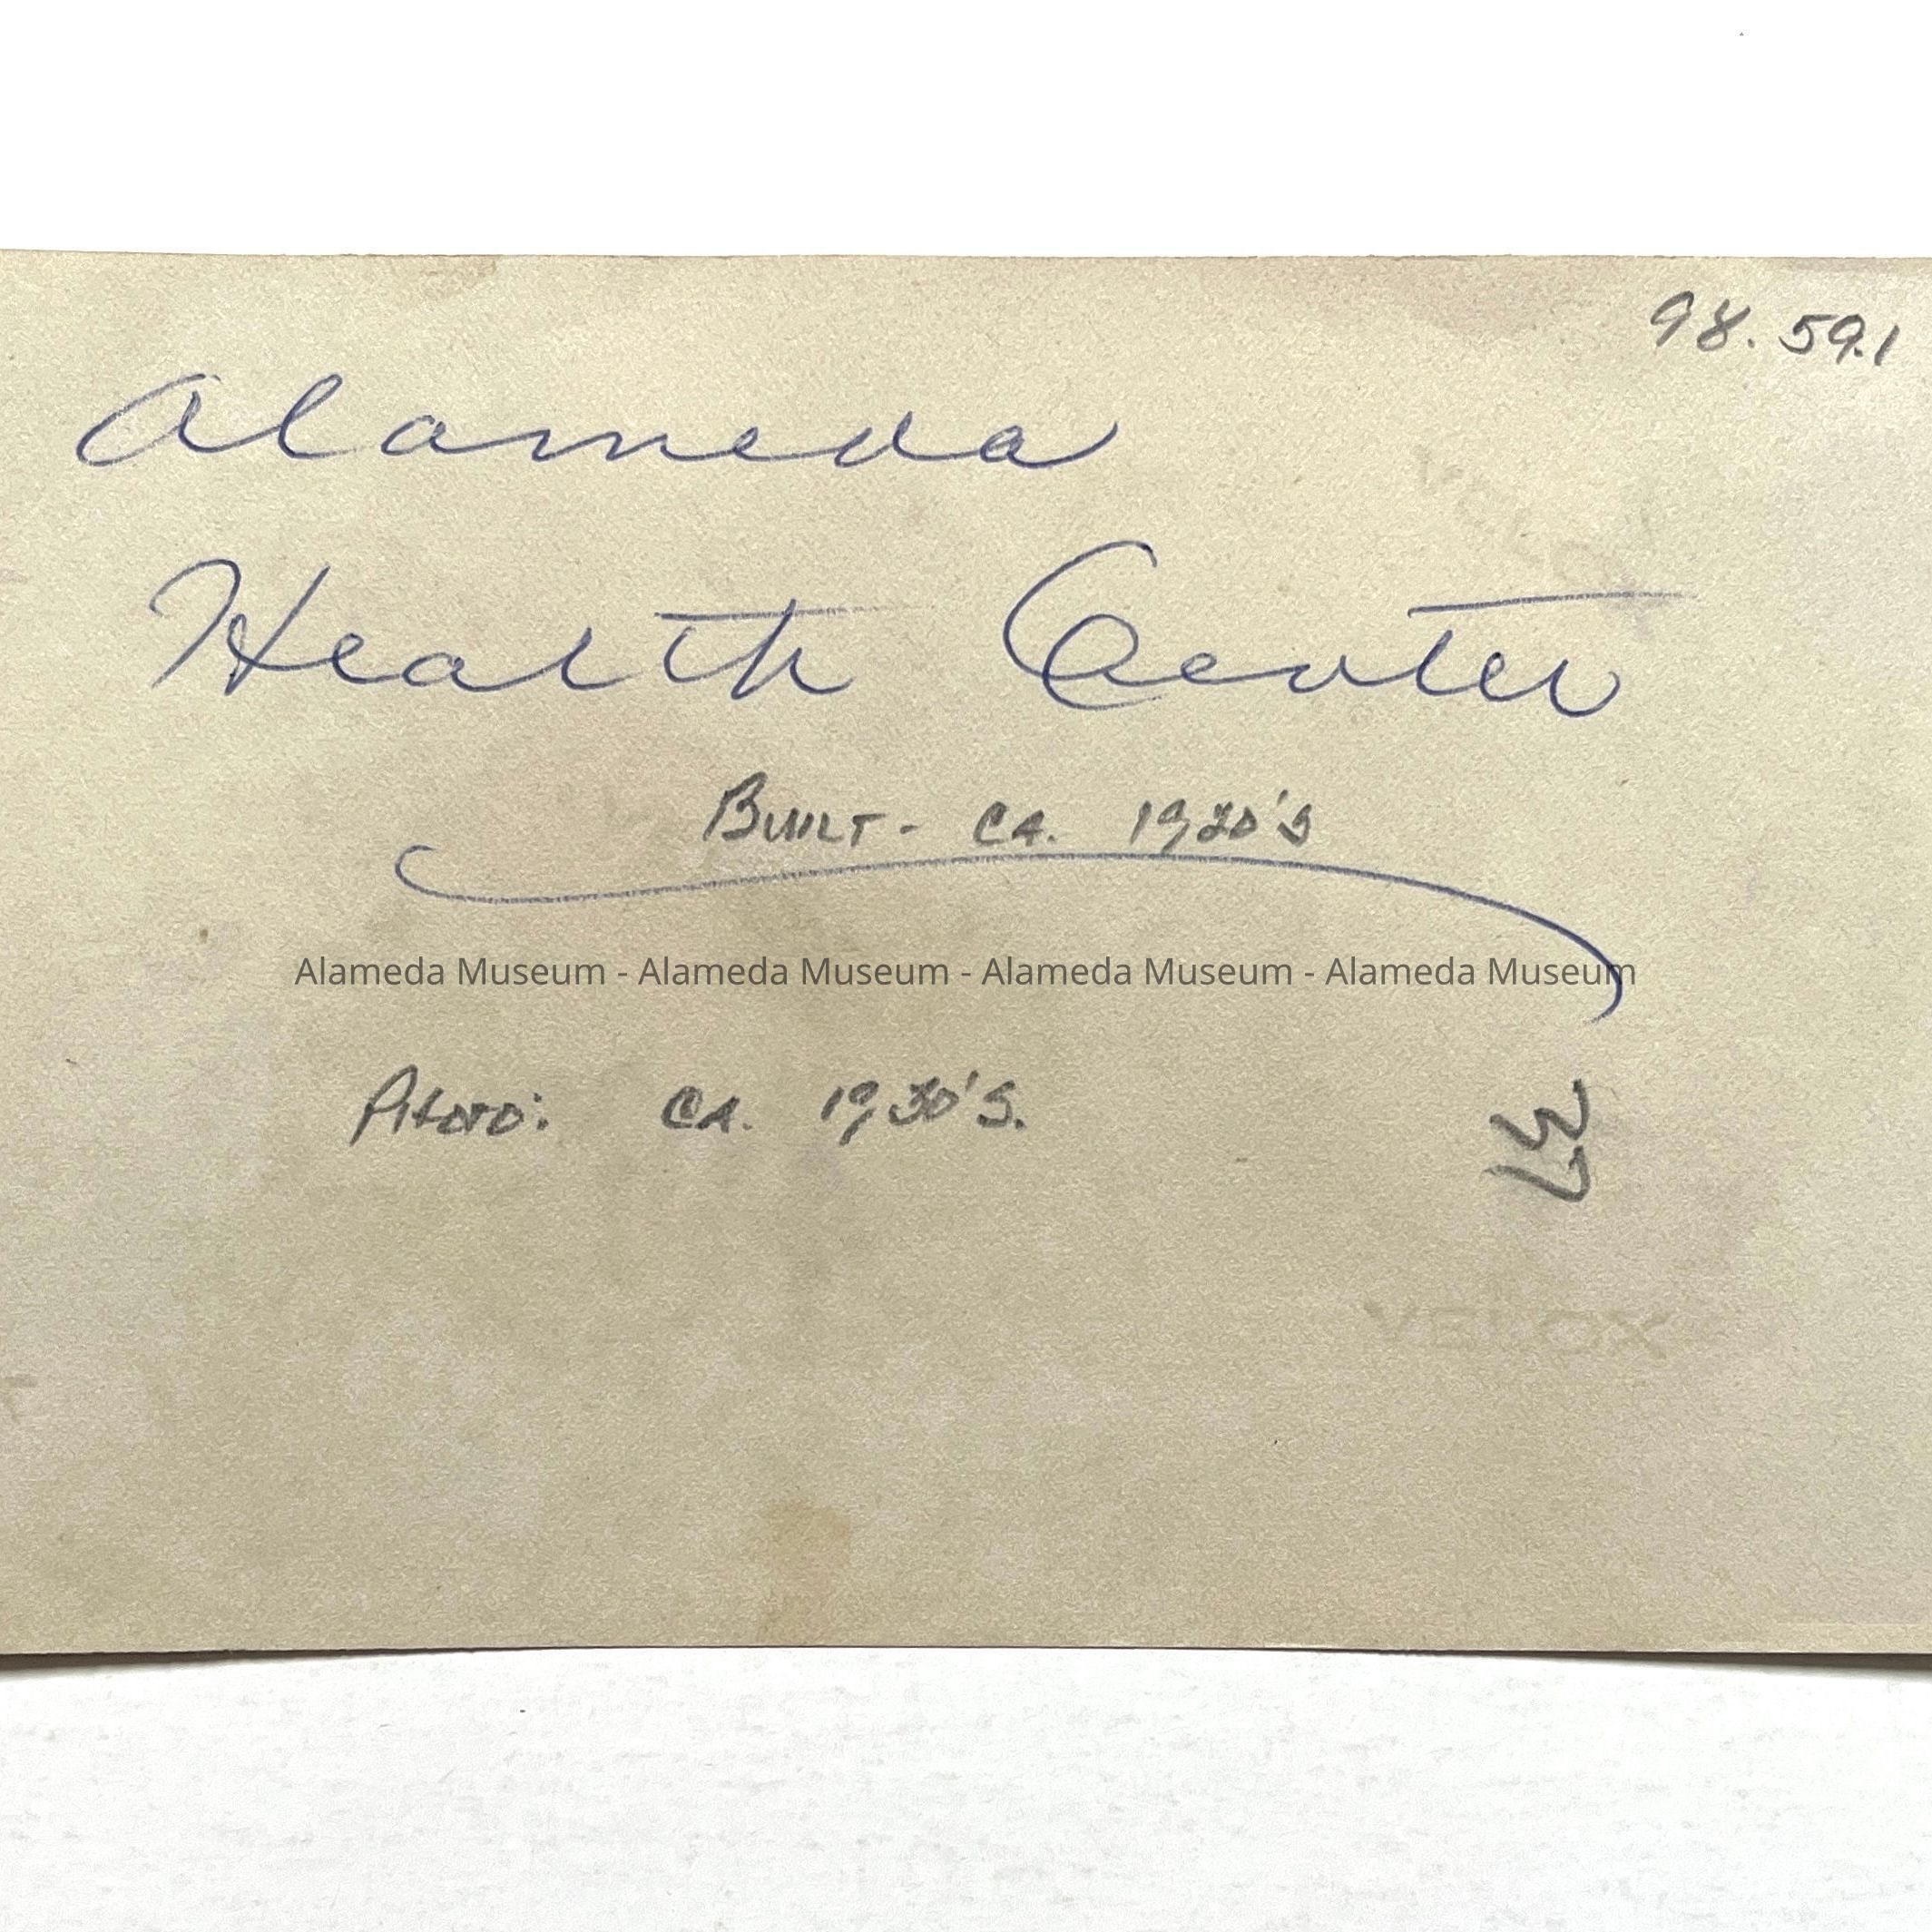 98.59.1
Alameda
Health Center
BUILT - CA. 1920's
Alameda Museum - Alameda Museum - Alameda Museum - Alameda Museum
PHOTO: CA. 1930's.
VELOX